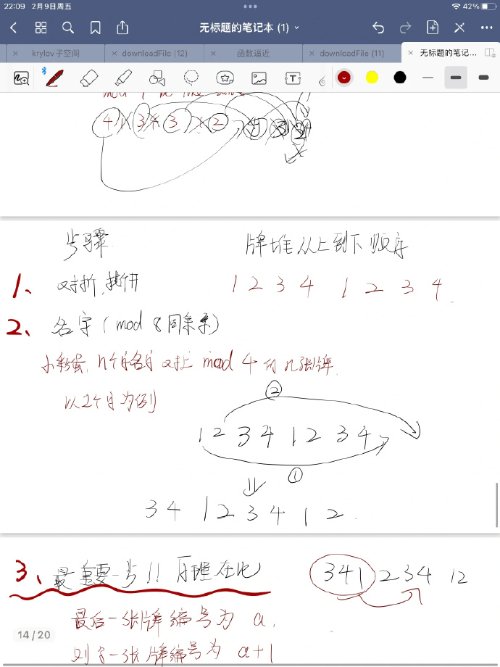 22:09 2月9日周五
42%
无标题的笔记本 (1)
krylov子空间
downloadFile (12)
函数逼近
downloadFile (11)
无标题的笔记...
4 3 4 3 2
步骤 牌堆从上到下顺序
1、 对折,撕开 1 2 3 4 1 2 3 4
2、 名字 (mod 8同余系)
n个字名字 mod 4 n张牌
以2个字为例
②
1 2 3 4 1 2 3 4
①
3 4 1 2 3 4 1 2
3、 最重要一步!! 原理在此 3 4 1 2 3 4 1 2
最后一张牌编号为 a,
则另一张牌编号为 a+1
14 / 20